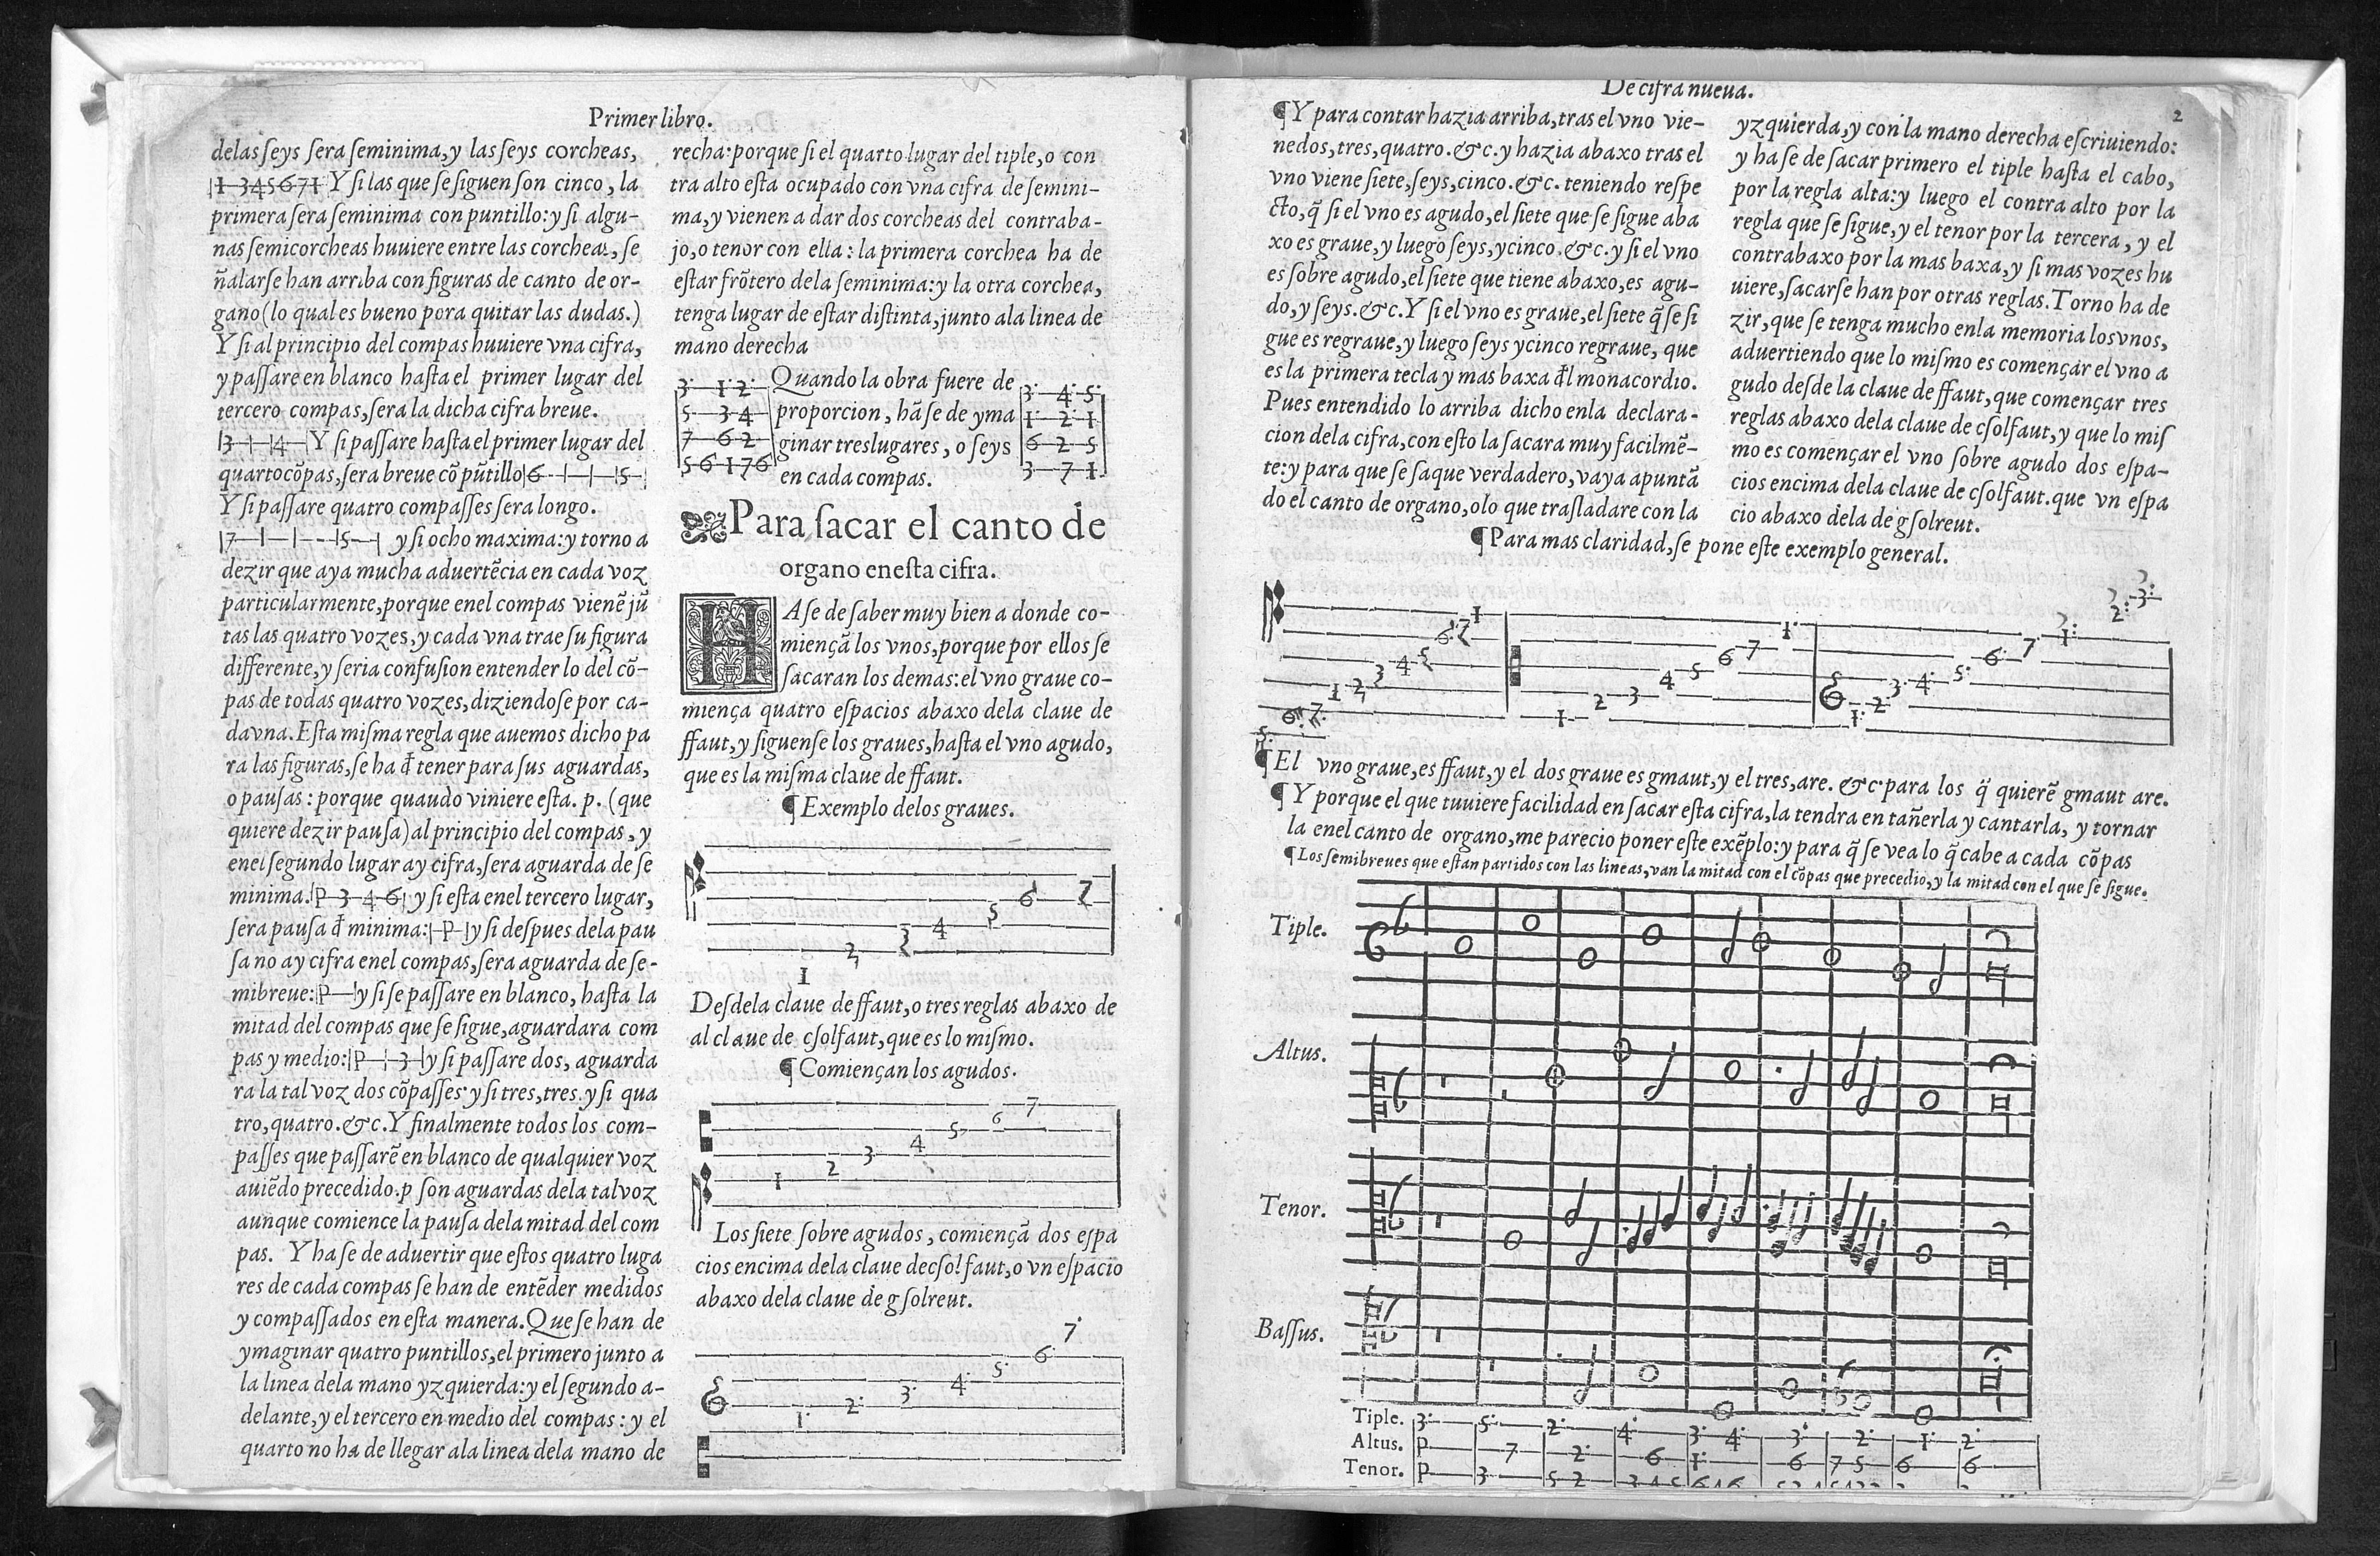 Primer libro.
delas seys sera seminima, y las seys corcheas,
|1-34567 1| Y si las que se siguen son cinco, la
primera sera seminima con puntillo: y si algu-
nas semicorcheas huuiere entre las corcheas, se
ñalarse han arriba con figuras de canto de or-
gano (lo qual es bueno pora quitar las dudas.)
Y si al principio del compas huuiere vna cifra,
y passare en blanco hasta el primer lugar del
tercero compas, sera la dicha cifra breue.
|3-|-|4-| Y si passare hasta el primer lugar del
quarto cõpas, sera breue cõ pũtillo |6-|-|-|5-|
Y si passare quatro compasses sera longo.
|7-|-|--|5-| y si ocho maxima: y torno a
dezir que aya mucha aduertẽcia en cada voz
particularmente, porque enel compas vienẽ jũ
tas las quatro vozes, y cada vna trae su figura
differente, y seria confusion entender lo del cõ-
pas de todas quatro vozes, diziendose por ca-
davna. Esta misma regla que auemos dicho pa
ra las figuras, se ha đ tener para sus aguardas,
o pausas: porque quaudo viniere esta. p. (que
quiere dezir pausa) al principio del compas, y
enel segundo lugar ay cifra, sera aguarda de se
minima. |P-3-4-6| y si esta enel tercero lugar,
sera pausa đ minima: |-P-| y si despues dela pau
sa no ay cifra enel compas, sera aguarda de se-
mibreue: |P-| y si se passare en blanco, hasta la
mitad del compas que se sigue, aguardara com
pas y medio: |P-|-3-| y si passare dos, aguarda
ra la tal voz dos cõpasses y si tres, tres. y si qua
tro, quatro. &c. Y finalmente todos los com-
passes que passarẽ en blanco de qualquier voz
auiẽdo precedido. p son aguardas dela tal voz
aunque comience la pausa dela mitad del com
pas. Y ha se de aduertir que estos quatro luga
res de cada compas se han de entẽder medidos
y compassados en esta manera. Que se han de
ymaginar quatro puntillos, el primero junto a
la linea dela mano yzquierda: y el segundo a-
delante, y el tercero en medio del compas: y el
quarto no ha de llegar ala linea dela mano de
recha: porque si el quarto lugar del tiple, o con
tra alto esta ocupado con vna cifra de semini-
ma, y vienen a dar dos corcheas del contraba-
jo, o tenor con ella: la primera corchea ha de
estar frõtero dela seminima: y la otra corchea,
tenga lugar de estar distinta, junto ala linea de
mano derecha
3· 1· 2·
5 3 4
7 6 2
5 6 1 7 6
Quando la obra fuere de
proporcion, hãse de yma
ginar tres lugares, o seys
en cada compas.
3· 4· 5·
1· 2· 1·
6 2 5
3 7 1
Para sacar el canto de
organo enesta cifra.
HAse de saber muy bien a donde co-
miençã los vnos, porque por ellos se
sacaran los demas: el vno graue co-
miença quatro espacios abaxo dela claue de
ffaut, y siguense los graues, hasta el vno agudo,
que es la misma claue de ffaut.
¶ Exemplo delos graues.
1 2 3 4 5 6 7
Desdela claue de ffaut, o tres reglas abaxo de
al claue de csolfaut, que es lo mismo.
¶ Comiençan los agudos.
1 2 3 4 5 6 7
Los siete sobre agudos, comiençã dos espa
cios encima dela claue decsolfaut, o vn espacio
abaxo dela claue de gsolreut.
1· 2· 3· 4· 5· 6· 7·
De cifra nueua.
2
¶ Y para contar hazia arriba, tras el vno vie-
nedos, tres, quatro. &c. y hazia abaxo tras el
vno viene siete, seys, cinco. &c. teniendo respe
cto, q̃ si el vno es agudo, el siete que se sigue aba
xo es graue, y luego seys, ycinco. &c. y si el vno
es sobre agudo, el siete que tiene abaxo, es agu-
do, y seys. &c. Y si el vno es graue, el siete q̃ se si
gue es regraue, y luego seys ycinco regraue, que
es la primera tecla y mas baxa đl monacordio.
Pues entendido lo arriba dicho enla declara-
cion dela cifra, con esto la sacara muy facilmẽ-
te: y para que se saque verdadero, vaya apuntã
do el canto de organo, olo que trasladare con la
yzquierda, y con la mano derecha escriuiendo:
y ha se de sacar primero el tiple hasta el cabo,
por la regla alta: y luego el contra alto por la
regla que se sigue, y el tenor por la tercera, y el
contrabaxo por la mas baxa, y si mas vozes hu
uiere, sacarse han por otras reglas. Torno ha de
zir, que se tenga mucho enla memoria los vnos,
aduertiendo que lo mismo es començar el vno a
gudo desde la claue de ffaut, que començar tres
reglas abaxo dela claue de csolfaut, y que lo mis
mo es començar el vno sobre agudo dos espa-
cios encima dela claue de csolfaut. que vn espa
cio abaxo dela de gsolreut.
¶ Para mas claridad, se pone este exemplo general.
5 6 7 1 2 3 4 5 6 7 1 1 2 3 4 5 6 7 1· 1· 2· 3· 4· 5· 6· 7· 1 2 3
¶ El vno graue, es ffaut, y el dos graue es gmaut, y el tres, are. &c· para los q̃ quierẽ gmaut are.
¶ Y porque el que tuuiere facilidad en sacar esta cifra, la tendra en tañerla y cantarla, y tornar
la enel canto de organo, me parecio poner este exẽplo: y para q̃ se vea lo q̃ cabe a cada cõpas
¶ Los semibreues que estan partidos con las lineas, van la mitad con el cõpas que precedio, y la mitad con el que se sigue.
Tiple.
Altus.
Tenor.
Bassus.
Tiple. 3· 5· 2· 4· 3· 4· 3· 2· 1· 2·
Altus. P 7 2· 6 1· 6 7 5 6 6
Tenor. P 3 5 2